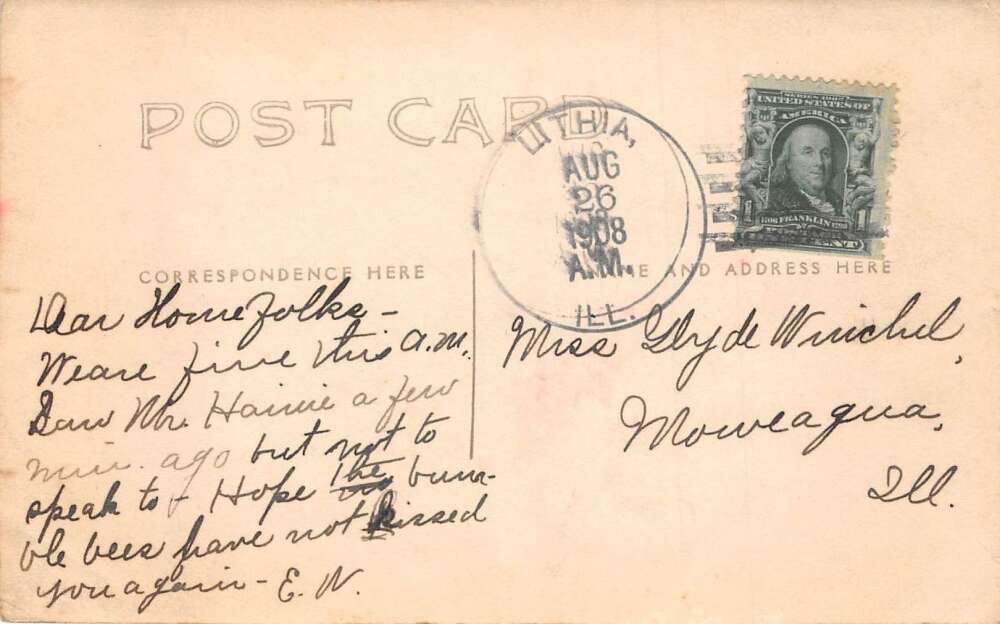 POST CARD
LITHIA,
AUG
26
1908
A.M.
ILL.
SERIES 1902
UNITED STATES OF
AMERICA
1 FRANKLIN 1
POSTAGE
CENT
CORRESPONDENCE HERE
NAME AND ADDRESS HERE
Dear Homefolks –
We are fine this a.m.
Saw Mr. Hainie a few
min. ago but not to
speak to – Hope the bum-
ble bees have not kissed
you again – E. N.
Miss Glyde Winchel,
Moweaqua,
Ill.